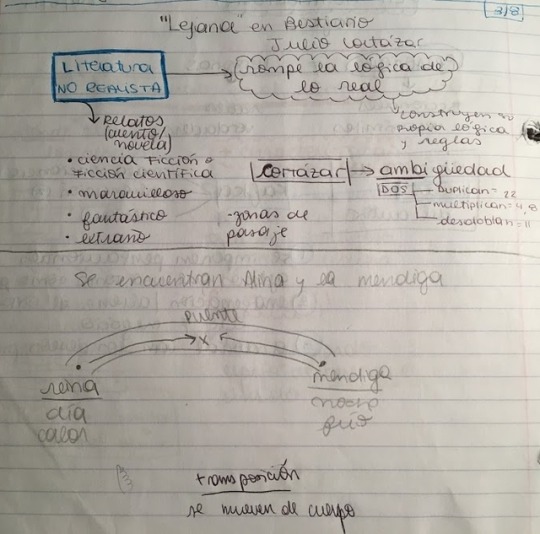 3/8
"Lejana" en Bestiario
Julio Cortázar
Literatura
NO REALISTA
rompe la lógica de
lo real
construyen su
propia lógica
y reglas
Relatos
(cuento/
novela)
• ciencia ficción o
ficción científica
• maravilloso
• fantástico
• extraño
Cortázar → ambigüedad
DOS
duplican = 22
multiplican = 4, 8
desdoblan = 11
- zonas de
pasaje
Se encuentran Alina y la mendiga
puente
x
reina
día
calor
mendiga
noche
frío
transposición
se mueven de cuerpo